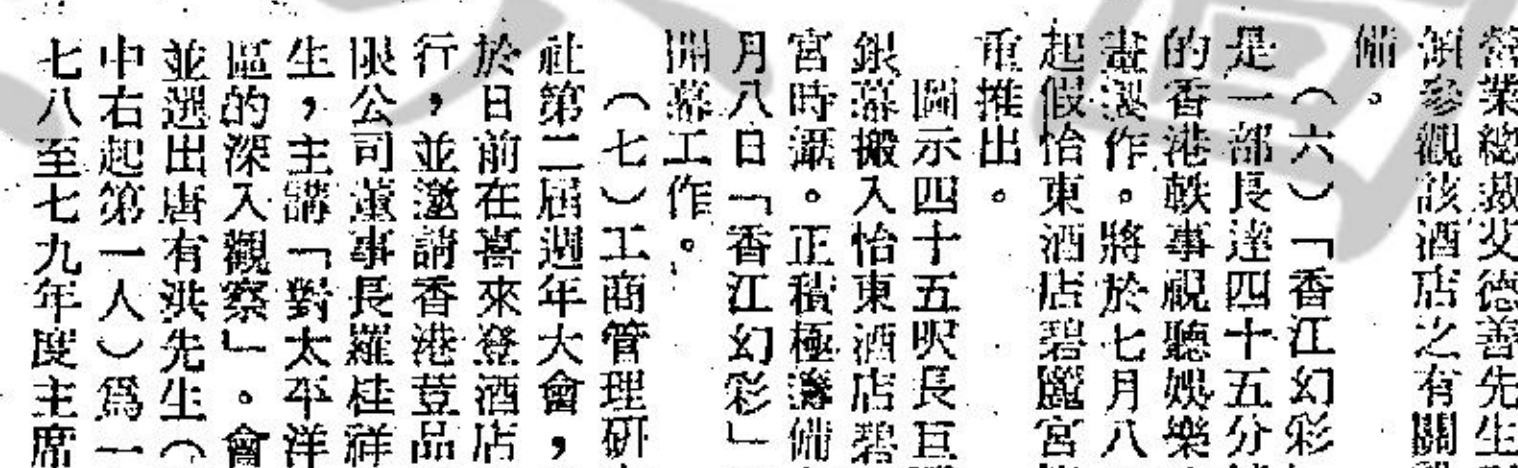 營業總裁艾德善先生
領參觀該酒店之有關
備。
（六）「香江幻彩
是一部長達四十五分
的香港軼事視聽娛樂
畫製作。將於七月八
起假怡東酒店碧麗宮
重推出。
圖示四十五呎長巨
銀幕搬入怡東酒店碧
宮時攝。正積極籌備
月八日「香江幻彩」
開幕工作。
（七）工商管理研
社第二屆週年大會，
於日前在喜來登酒店
行，並邀請香港荳品
限公司董事長羅桂祥
生，主講「對太平洋
區的深入觀察」。會
並選出唐有洪先生（
中右起第一人）爲一
七八至七九年度主席